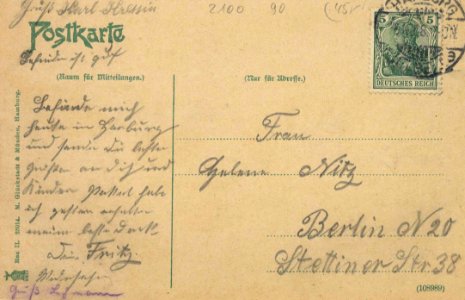 Gruß Karl
2100 90
Postkarte
Befinden ist gut
(Raum für Mitteilungen.)
(Nur für Adresse.)
5 5
DEUTSCHES REICH
HAMBURG
Befinde mich
heute in Harburg
und sende Dir beste
Grüßen an dich und
Kinder Packet habe
ich gestern erhalten
meinen besten Dank.
Dein Fritz
Gruß
Frau
Helene Nitz
Berlin N 20
Stettiner Str 38
Rau II. M. Glückstadt & Münden, Hamburg.
(108989)